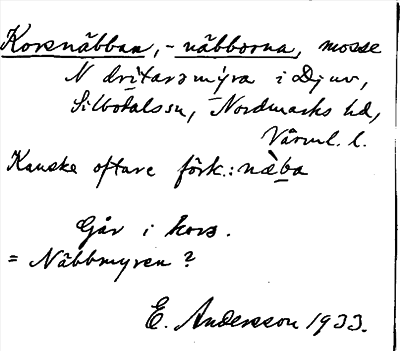 Korsnäbban, -näbborna, mosse
N dritarsmýra i Djuv,
Silbodals sn, Nordmarks hd,
Värml. l.
Kanske oftare förk.: næ̀ba
Går i kors.
= Näbbmyren?
E. Andersson 1933.